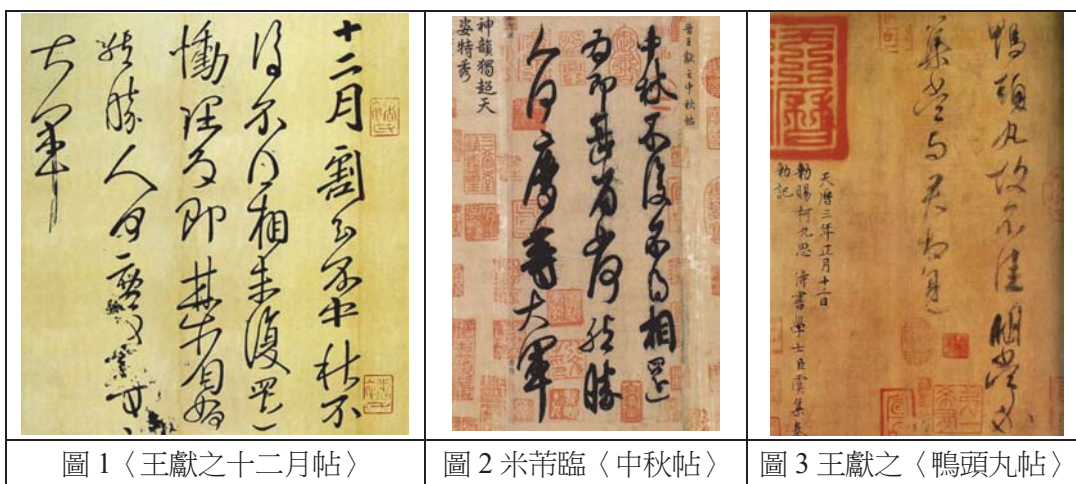 十二月割至不中秋不
復不得相未復還
慟理為即甚省如
然勝人何慶等
大軍
晉王獻之中秋帖
中秋不復不得相還
為即甚省如何然勝
人何慶等大軍
神韻獨超天
姿特秀
鴨頭丸故不佳明當必
集當與君相見
天曆三年正月十二日
勅賜柯九思侍書學士臣虞集奉
勅記
圖 1〈王獻之十二月帖〉
圖 2 米芾臨〈中秋帖〉
圖 3 王獻之〈鴨頭丸帖〉